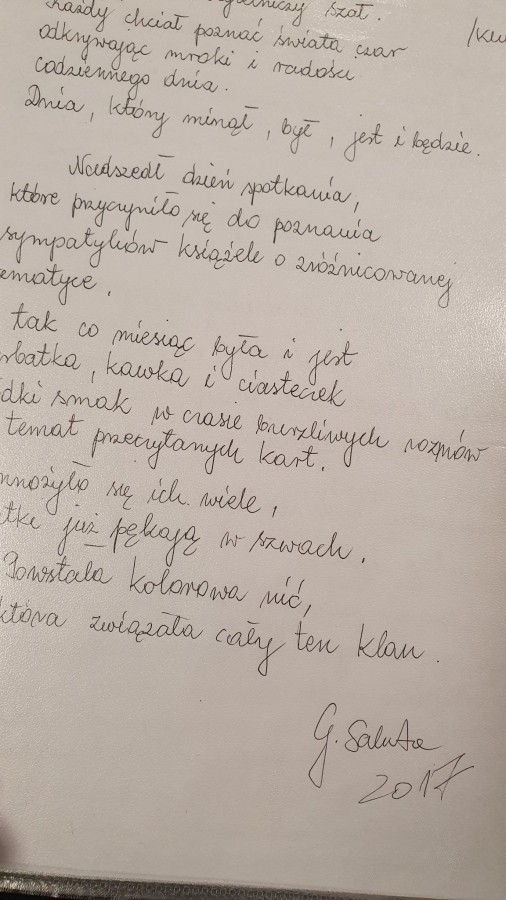 szał.
każdy chciał poznać świata czar
odkrywając mroki i radości
codziennego dnia.
Dnia, który minął, był, jest i będzie.
Nadszedł dzień spotkania,
które przyczyniło się do poznania
sympatyków książek o zróżnicowanej
ematyce.
tak co miesiąc była i jest
rbatka, kawka i ciasteczek
dki smak w czasie burzliwych rozmów
temat przeczytanych kart.
mnożyło się ich wiele,
tki już pękają w szwach.
Powstała kolorowa nić,
która związała cały ten klan.
G. Saluta
2017